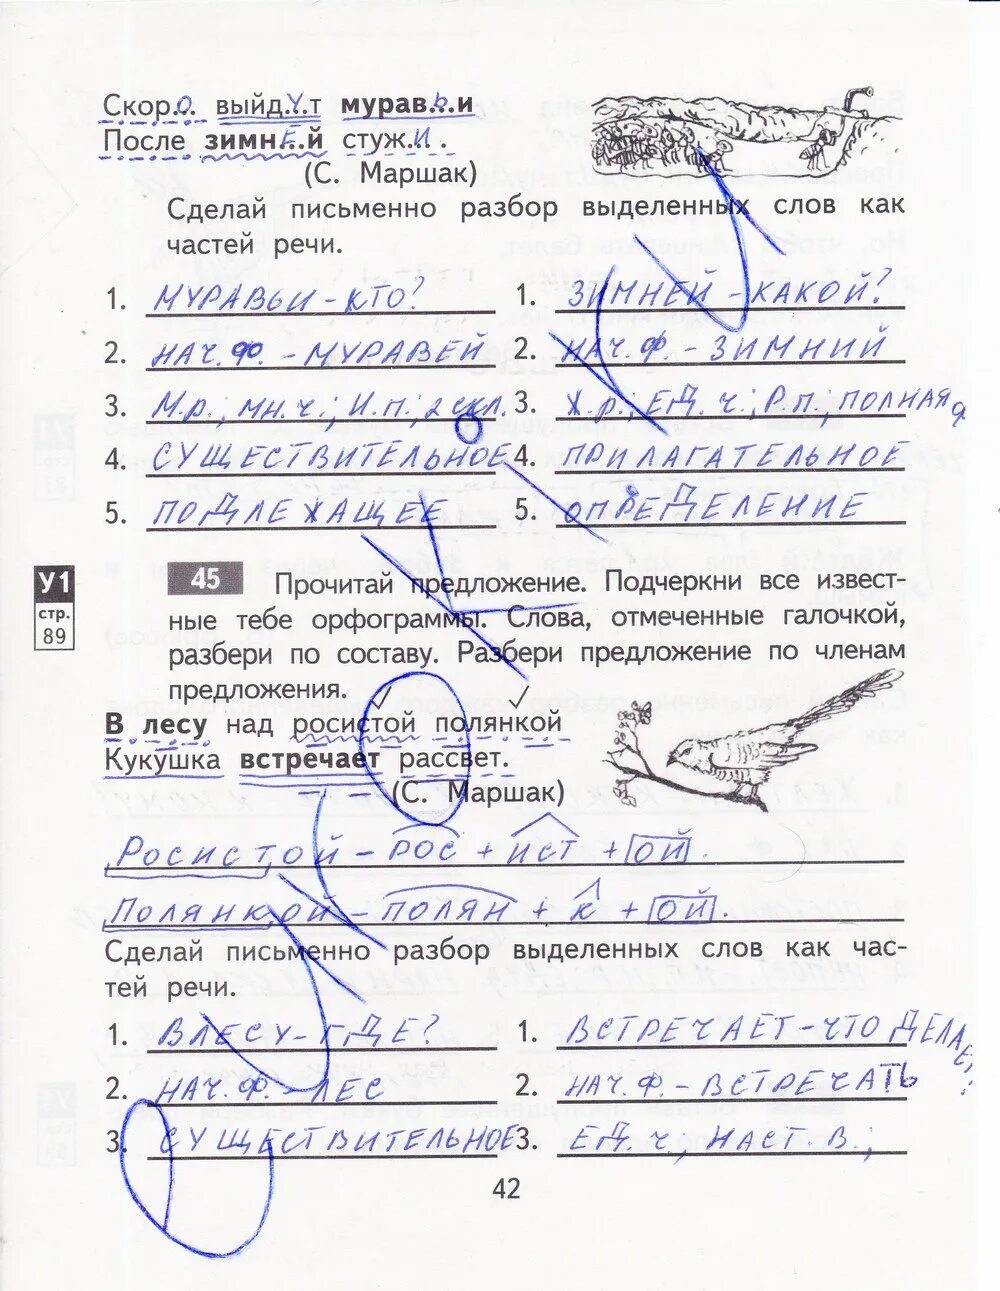 Скор.о. выйд.у.т мурав.ь.и
После зимн.е.й стуж.и.
(С. Маршак)
Сделай письменно разбор выделенных слов как
частей речи.
1. МУРАВЬИ - КТО? 1. ЗИМНЕЙ - КАКОЙ?
2. НАЧ. Ф. - МУРАВЕЙ 2. НАЧ. Ф. - ЗИМНИЙ
3. М.р.; мн.ч.; И.п.; 2 скл. 3. Ж.р.; ЕД.ч.; Р.п., ПОЛНАЯ
4. СУЩЕСТВИТЕЛЬНОЕ 4. ПРИЛАГАТЕЛЬНОЕ
5. ПОДЛЕЖАЩЕЕ 5. ОПРЕДЕЛЕНИЕ
У1
стр.
89
45 Прочитай предложение. Подчеркни все извест-
ные тебе орфограммы. Слова, отмеченные галочкой,
разбери по составу. Разбери предложение по членам
предложения.
В лесу над росистой полянкой
Кукушка встречает рассвет.
(С. Маршак)
Росистой - РОС + ИСТ + ОЙ.
Полянкой - ПОЛЯН + К + ОЙ.
Сделай письменно разбор выделенных слов как час-
тей речи.
1. В ЛЕСУ - ГДЕ? 1. ВСТРЕЧАЕТ - ЧТО ДЕЛАЕТ?
2. НАЧ. Ф. - ЛЕС 2. НАЧ. Ф. - ВСТРЕЧАТЬ
3. СУЩЕСТВИТЕЛЬНОЕ 3. ЕД.Ч; НАСТ.В.;
42